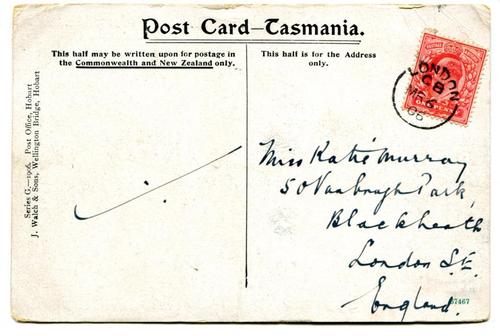 Post Card—Tasmania.
This half may be written upon for postage in
the Commonwealth and New Zealand only.
This half is for the Address
only.
LONDON
C8
MR 6
06
Series G.—1906. Post Office, Hobart
J. Walch & Sons, Wellington Bridge, Hobart
Miss Katie Murray
50 Vanbrugh Park,
Blackheath
London S.E.
England.
37467